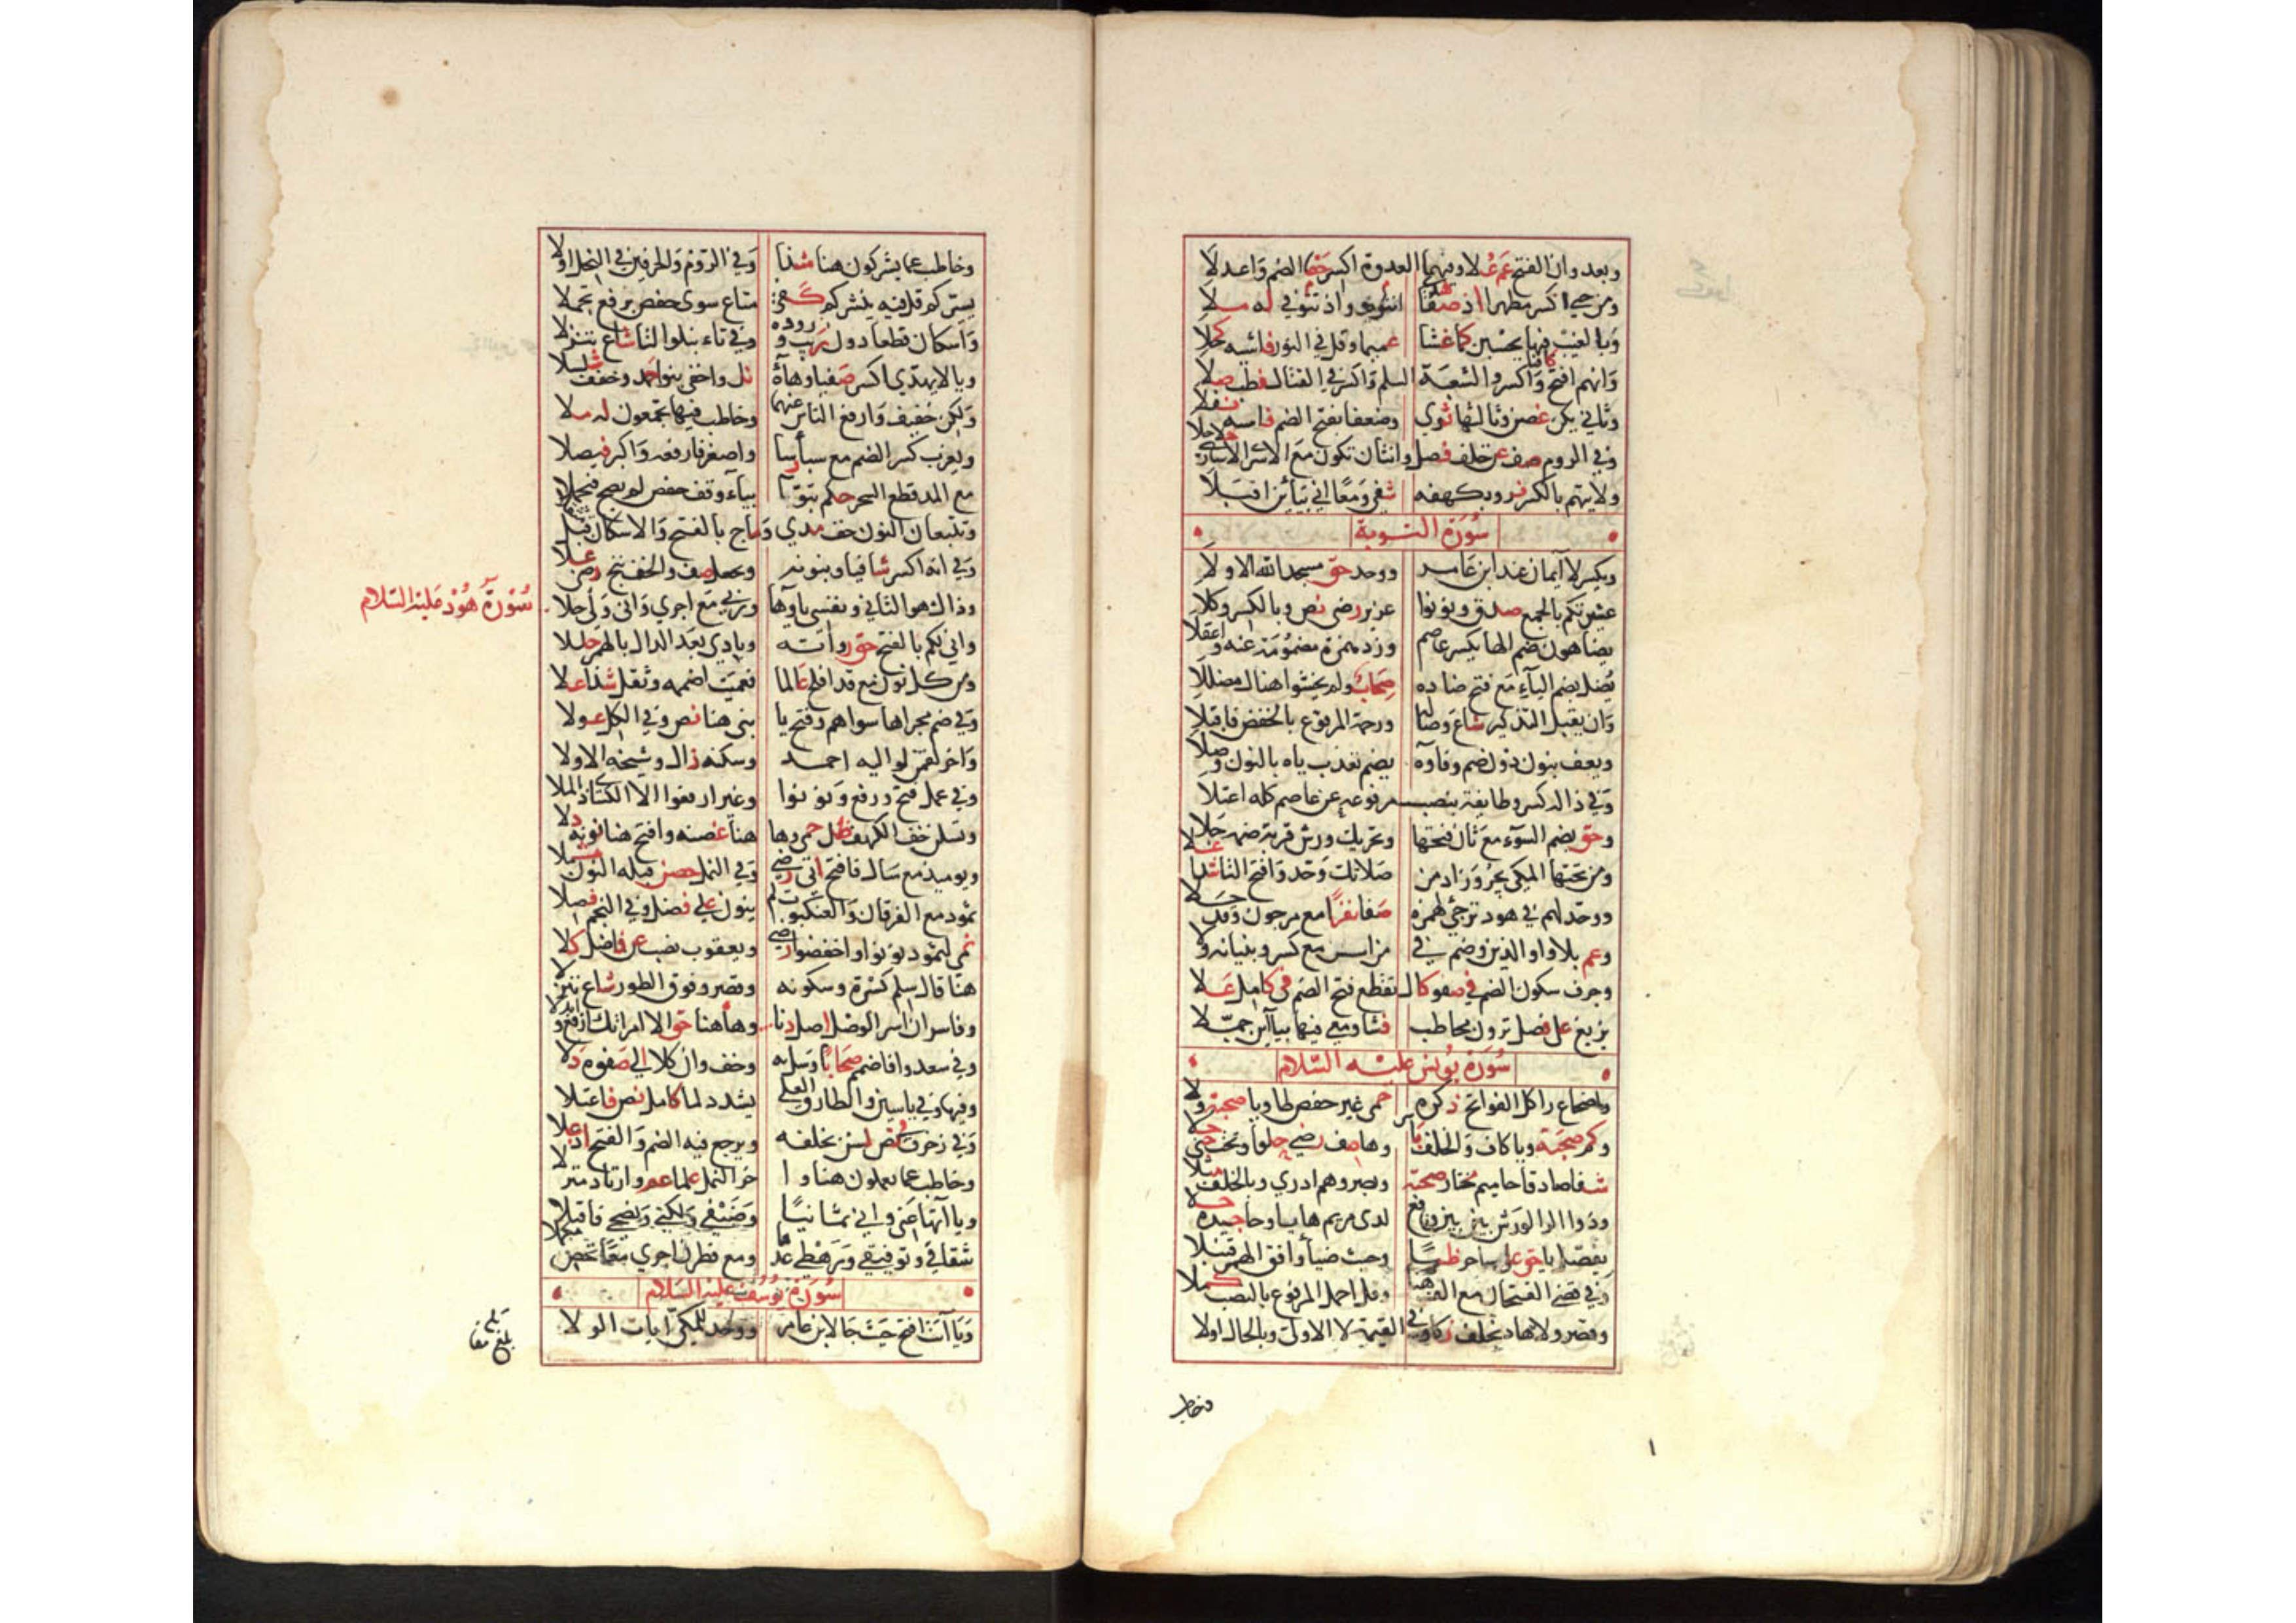 وبعد وان الفتح عم علا وفيهما العدوة اكسر حقا الضم واعدلا
ومن حيي اكسر مظهرا اذ صفا هدى واذ تتوفى انثوه له ملا
وبالغيب فيها يحسبن كما فشا عميما وقل في النور فاشيه كحلا
وانهم افتح كافيا واكسروا لشعبة السلم واكسر في القتال فطب صلا
وثاني يكن غصن وثالثها ثوى وضعفا بفتح الضم فاشيه نفلا
وفي الروم صف عن خلف فصل وانث ان تكون مع الاسرى الاسارى حلا حلا
ولايتهم بالكسر فز وبكهفه شفى ومعا اني بيائين اقبلا
سورة التوبة
ويكسر لا ايمان عند ابن عامر ووحد حق مسجد الله الاولا
عشيراتكم بالجمع صدق ونونوا عزير رضى نص وبالكسر وكلا
يضاهون ضم الها يكسر عاصم وزد همزة مضمومة عنه واعقلا
يضل بضم الياء مع فتح ضاده صحاب ولم يخشوا هناك مضللا
وان يقبل التذكير شاع وصاله ورحمة المرفوع بالخفض فاقبلا
ويعف بنون دون ضم وفاؤه يضم تعذب ياه بالنون وصلا
وفي ذاله كسر وطايفة بنصب مرفوعه عن عاصم كله اعتلا
وحق بضم السوء مع ثان فتحها وتحريك ورش قربة ضمه جلا
ومن تحتها المكي يجر وزاد من صلاتك وحد وافتح التا شذا علا
ووحد لهم في هود ترجئ همزه صفا نفر مع مرجئون وقد حلا
وعم بلا واو الذين وضم في من اسس مع كسر وبنيانه ولا
وجرف سكون الضم في صفو كامل تقطع فتح الضم في كامل علا
يزيغ على فصل ترون مخاطب فشا ومعي فيها بياءين جملا
سورة يونس عليه السلام
واضجاع را كل الفواتح ذكره حمى غير حفص طا ويا صحبة ولا
وكم صحبة ويا كاف والخلف ياسر وها صف رضى حلوا وتحت جنى حلا
شفا صادقا حاميم مختار صحبة وبصر وهم ادرى وبالخلف مثلا
وذو الرا لورش بين بين ونافع لدى مريم هايا وحا جيده حلا
يفصل يا حق علا ساحر ظبى وحيث ضياء وافق الهمز قنبلا
وفي قضي الفتحان مع الف هنا وقل اجل المرفوع بالنصب كملا
وقصر ولا هاد بخلف زكا وفي القيمة لا الاولى وبالحال اولا
فخاطب
١
وخاطب عما يشركون هنا شذا وفي الروم والحرفين في النحل اولا
يسيركم قل فيه ينشركم كفى متاع سوى حفص برفع تحملا
واسكان قطعا دون ريب وروده وفي باء تبلوا التا شاع تنزلا
ويا لا يهدي اكسر صفيا وهاه نل واخفى بنو حمد وخفف شلشلا
ولكن خفيف وارفع الناس عنهما وخاطب فيها تجمعون له ملا
ويعزب كسر الضم مع سبأ رسا واصغر فارفعه واكبر فيصلا
مع المد قطع السحر حكم تبوآ بياء وقف حفص لم يصح فيحملا
وتتبعان النون خف مدى وماج بالفتح والاسكان قبل مثقلا
وفي انه اكسر شافيا وبنونه ونجعل صف والخف ننج رضى علا
وذاك هو الثاني ونفسي ياؤها وربي مع اجري واني ولي حلا
سورة هود عليه السلام
واني لكم بالفتح حق رواته وبادي بعد الدال بالهمز حللا
ومن كل نون مع قد افلح عالما فعميت اضممه وثقل شذا علا
وفي ضم مجراها سواهم وفتح يا بني هنا نص وفي الكل عولا
واخر لقمن يواليه احمد وسكنه زاك وشيخه الاولا
وفي عمل فتح ورفع ونونوا وغير ارفعوا الا الكسائي ذا الملا
وتسئلن خف الكهف ظل حمى وها هنا غصنه وافتح هنا نونه دلا
ويوميذ مع سال فافتح اتى رضى وفي النمل حصن قبله النون ثملا
ثمود مع الفرقان والعنكبوت لم ينون على فصل وفي النجم فصلا
نمى لثمود نونوا واخفضوا رضى ويعقوب نصب عن فاضل كلا
هنا قال سلم كسره وسكونه وقصر وفوق الطور شاع تنزلا
وفاسر ان اسر الوصل اصل دنا وها هنا حق الا امراتك ارفع وابدلا
وفي سعدوا فاضمم صحابا وسل به وخف وان كلا الى صفوه دلا
وفيها وفي ياسين والطارق العلى يشدد لما كامل نص فاعتلا
وفي زخرف نص لسن بخلفه ويرجع فيه الضم والفتح اذ علا
وخاطب عما يعملون هنا وا خر النمل علما عم وارتاد منزلا
ويا اتها عني واني ثمانيا وضيفي ولكني ونصحي فاقبلا
شقاقي وتوفيقي ورهطي عدها ومع فطرن اجري معا تحص مكملا
سورة يوسف عليه السلام
ويا ابت افتح حيث جا لابن عامر ووحد للمكي ايات الولا
بلغ مقابلة